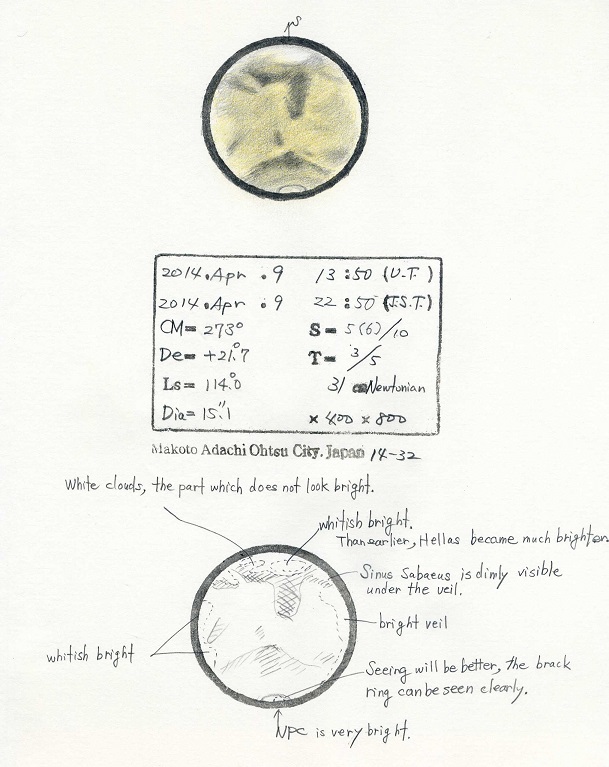 S
2014.Apr.9 13:50 (U.T.)
2014.Apr.9 22:50 (J.S.T.)
CM= 273° S= 5(6)/10
De= +21.°7 T= 3/5
Ls= 114.°0 31 cm Newtonian
Dia= 15."1 × 400 × 800
Makoto Adachi Ohtsu City. Japan 14-32
White clouds, the part which does not look bright.
whitish bright.
Than earlier, Hellas became much brighten
Sinus Sabaeus is dimly visible
under the veil.
bright veil
whitish bright
Seeing will be better, the brack
ring can be seen clearly.
NPC is very bright.